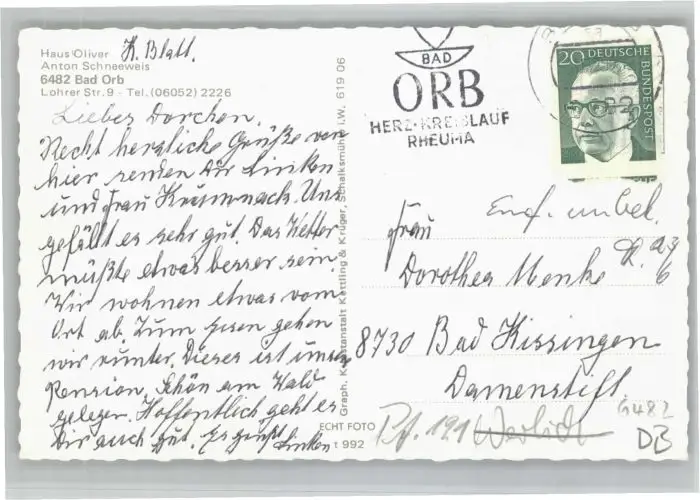 Haus Oliver K. Blatt.
Anton Schneeweis
6482 Bad Orb
Lohrer Str. 9 - Tel. (06052) 2226
Liebes Dorchen.
Recht herzliche Grüße von
hier senden Dir Linken
und Frau Krumnack. Uns
gefällt es sehr gut. Das Wetter
müßte etwas besser sein.
Wir wohnen etwas vom
Ort ab. Zum Essen gehen
wir runter. Dieses ist unsere
Pension. Schön am Wald
gelegen. Hoffentlich geht es
Dir auch gut. Es grüßt Linken
Graph. Kunstanstalt Kettling & Krüger, Schalksmühle i.W. 619 06
ECHT FOTO
t 992
BAD
ORB
HERZ-KREISLAUF
RHEUMA
20 DEUTSCHE
BUNDESPOST
Emf. unbek.
Frau
Dorothea Menke
8730 Bad Kissingen
Damenstift
6482
DB